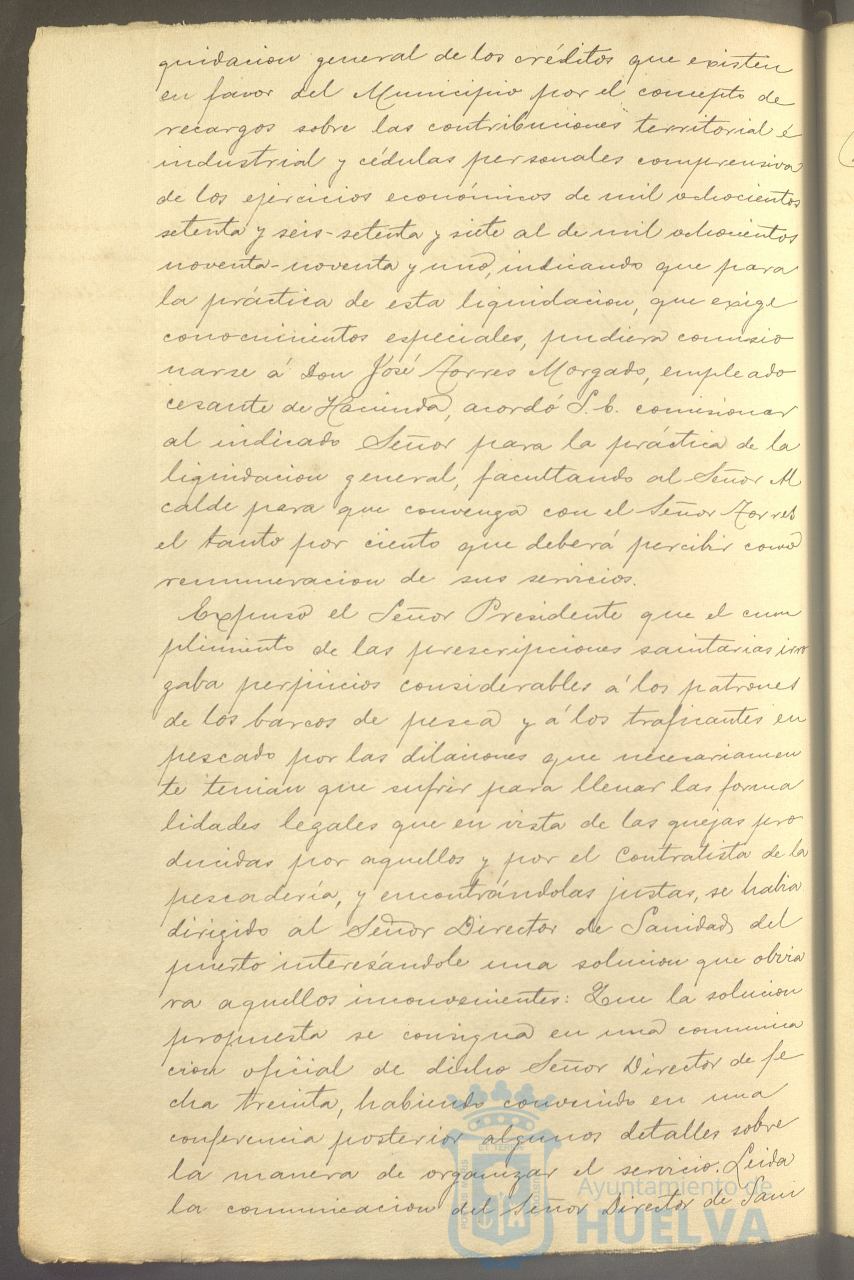 quidacion general de los créditos que existen
en favor del Municipio por el concepto de
recargos sobre las contribuciones territorial é
industrial y cédulas personales comprensiva
de los ejercicios económicos de mil ochocientos
setenta y seis-setenta y siete al de mil ochocientos
noventa-noventa y uno, indicando que para
la práctica de esta liquidacion, que exige
conocimientos especiales, pudiera comisio
narse á Don José Torres Morgado, empleado
cesante de Hacienda, acordó S.E. comisionar
al indicado Señor para la práctica de la
liquidacion general, facultando al Señor Al
calde para que convenga con el Señor Torres
el tanto por ciento que deberá percibir como
remuneracion de sus servicios.
Expuso el Señor Presidente que el cum
plimiento de las prescripciones sanitarias irro
gaba perjuicios considerables á los patrones
de los barcos de pesca y á los traficantes en
pescado por las dilaciones que necesariamen
te tenian que sufrir para llenar las forma
lidades legales que en vista de las quejas pro
ducidas por aquellos y por el Contratista de la
pescadería, y encontrándolas justas, se habia
dirigido al Señor Director de Sanidad del
puerto interesándole una solucion que obvia
ra aquellos inconvenientes: Que la solucion
propuesta se consigna en una comunica
cion oficial de dicho Señor Director de fe
cha treinta, habiendo convenido en una
conferencia posterior algunos detalles sobre
la manera de organizar el servicio. Leida
la comunicacion del Señor Director de Sani
Ayuntamiento de
HUELVA